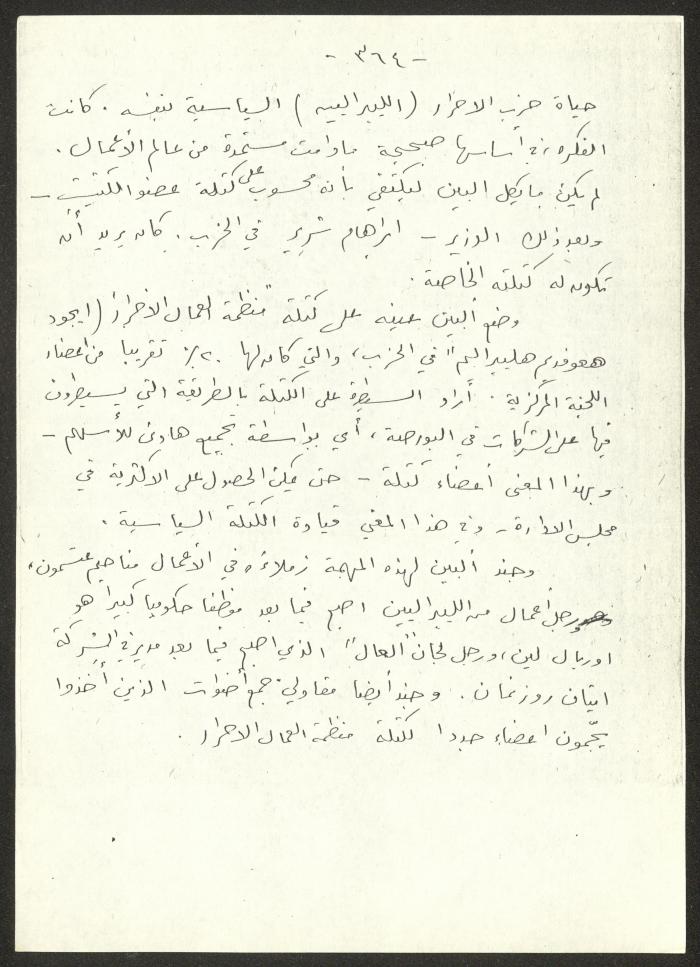 - ٣٦٤ -
حياة حزب الاحرار (الليبراليين) السياسية بنفسه. كانت
الفكرة، في أساسها صحيحة مادامت مستمدة من عالم الأعمال.
لم يكن مايكل البين ليكتفي بأنه محسوب على كتلة عضو الكنيست -
وبعد ذلك الوزير - ابراهام شرير في الحزب. كان يريد أن
تكون له كتلته الخاصة.
وضع ألبين عينه على كتلة "منظمة العمال الاحرار" (ايجود
هعوفديم هليبراليم" في الحزب، والتي كان لها ٢٠٪ تقريبا من اعضاء
اللجنة المركزية. أراد السيطرة على الكتلة بالطريقة التي يسيطرون
فيها على الشركات في البورصة، أي بواسطة تجميع هادئ للأسهم -
وبهذا المعنى أعضاء كتلة - حتى يمكن الحصول على الاكثرية في
مجلس الادارة - وفي هذا المعنى قيادة الكتلة السياسية.
وجند ألبين لهذه المهمة زملاءه في الأعمال مناحيم عتسمون،
رجل أعمال من الليبراليين اصبح فيما بعد موظفا حكوميا كبيرا هو
اوريال لين، ورجل لجان "العال" الذي اصبح فيما بعد مديرا في الشركة
ايتان روزنمان. وجند أيضا مقاولي جمع أصوات الذين أخذوا
يجمعون اعضاء جددا لكتلة منظمة العمال الاحرار.